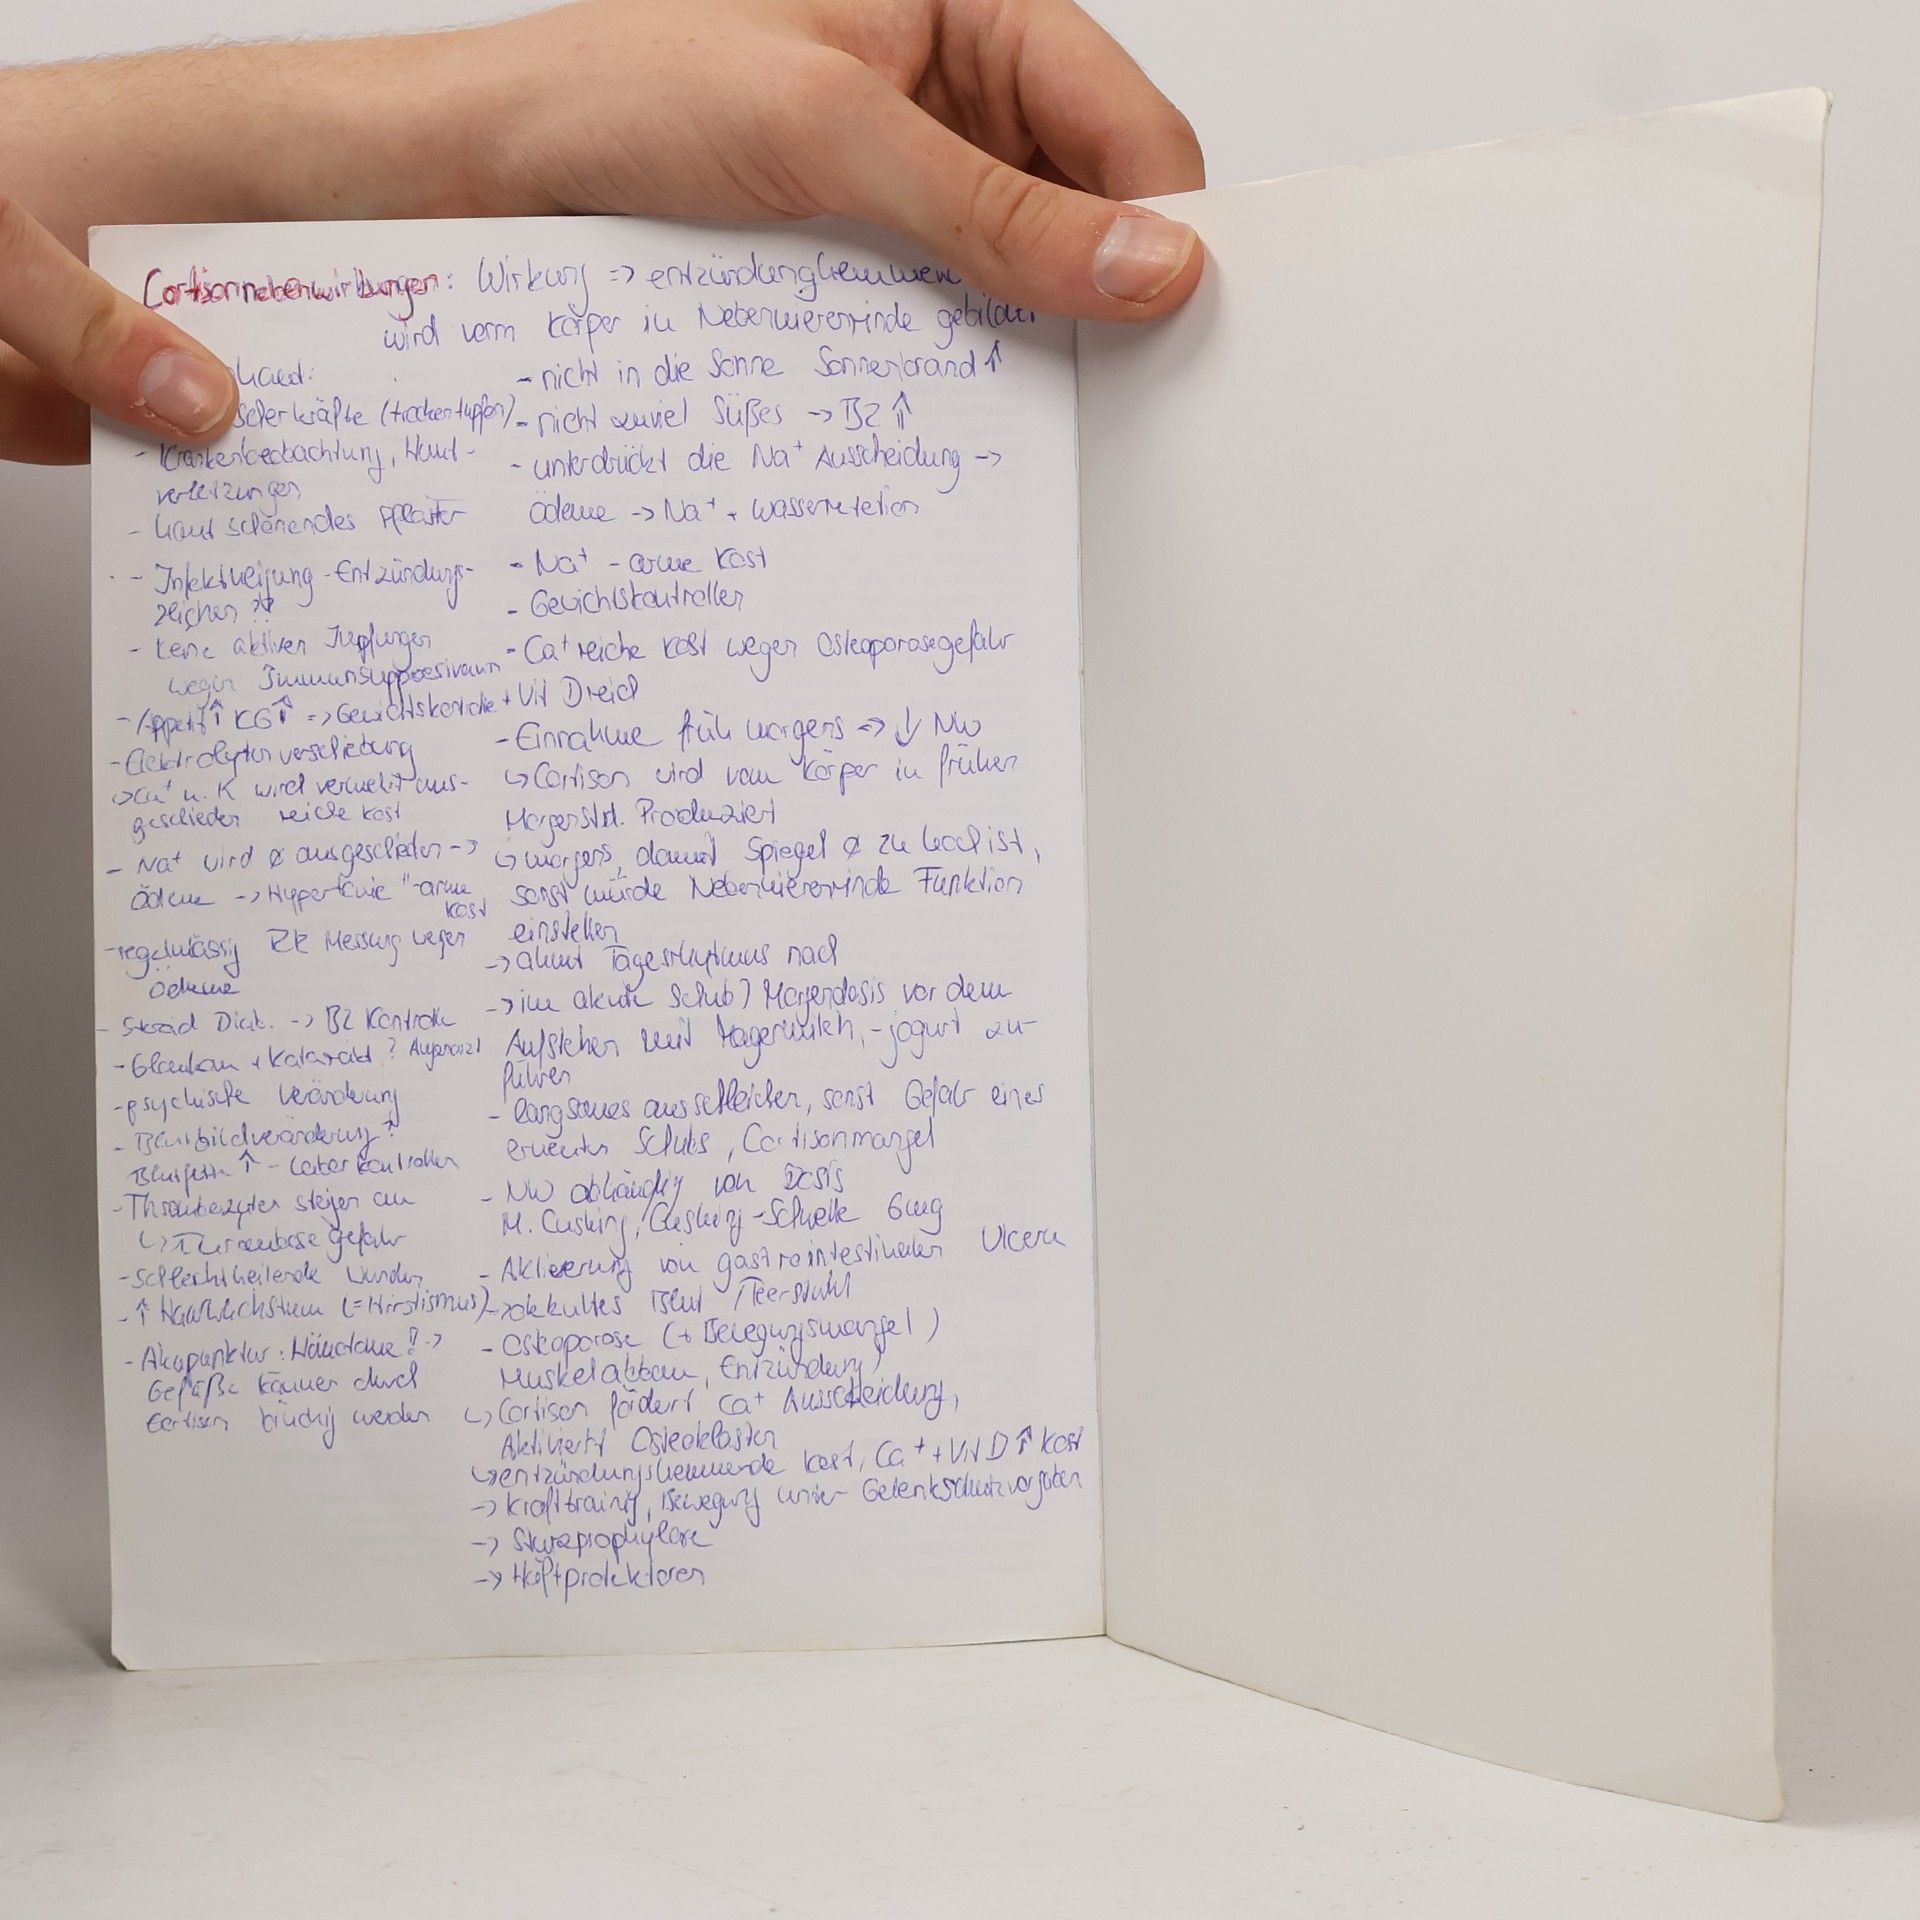 Cortisonnebenwirkungen: Wirkung => entzündunghemmen
wird vom Körper in Nebennierenrinde gebildet
haut:
Scherkräfte (trockentupfen)
- Krankenbeobachtung, Haut-
verletzungen
- haut schonendes Pflaster
- Infektneigung - Entzündungs-
zeichen ??
- keine aktiven Impfungen
wegen Immunsuppressivum
- Appetit ↑ KG ⇑ => Gewichtskontrolle
- Elektrolytenverschiebung
-> Ca⁺ u. K wird vermehrt aus-
geschieden reiche Kost
- Na⁺ wird ø ausgeschieden ->
Ödeme -> Hypertonie "-arme
Kost
- regelmässig RR Messung wegen
Ödeme
- Steroid Diab. -> BZ Kontrolle
- Glaukom + Katarakt ? Augenarzt
- psychische Veränderung
- Blutbildveränderung?
Blutfette ↑ - Laborkontrollen
- Thrombozyten steigen an
↳ Thrombosegefahr
- schlechtheilende Wunden
- ↑ Haarwuchstum (= Hirstismus)
- Akupunktur: Hämatome !! ->
Gefäße können durch
Cortison brüchig werden
- nicht in die Sonne Sonnenbrand ⇑
- nicht zuviel Süßes -> BZ ⇑
- unterdrückt die Na⁺ Ausscheidung ->
Ödeme -> Na⁺ + Wasserretetion
- Na⁺ - arme Kost
- Gewichtskontrollen
- Ca⁺ reiche Kost wegen Osteoporosegefahr
+ Vit D reich
- Einnahme früh morgens => ↓ NW
↳ Cortison wird vom Körper in frühen
Morgenstd. Produziert
↳ morgens, damit Spiegel ø zu hoch ist,
sonst würde Nebennierenrinde Funktion
einstellen
-> ahmt Tagesrhytmus nach
-> im akute Schub) Morgendosis vor dem
Aufstehen mit Magermilch, -jogurt zu-
führen
- langsames ausschleichen, sonst Gefahr eines
erneuten Schubs, Cortisonmangel
- NW abhängig von Dosis
M. Cushing, Cushing-Schwelle 6mg
- Aktivierung von gastrointestinalen Ulcera
-> okkultes Blut / Teerstuhl
- Osteoporose (+ Bewegungsmangel)
Muskelabbau, Entzündung)
↳ Cortison fördert Ca⁺ Ausscheidung,
Aktiviert Osteoklasten
↳ entzündungshemmende Kost, Ca⁺ + Vit D ⇑ Kost
-> Krafttraining, Bewegung unter Gelenkschutzvorgaben
-> Sturzprophylaxe
-> Hüftprotektoren